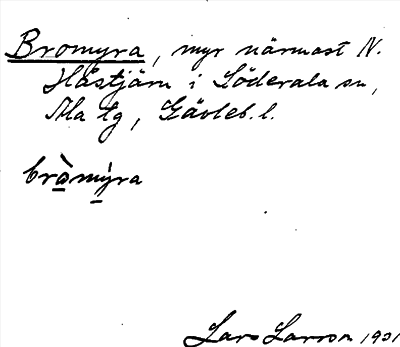 Bromyra, myr närmast N.
Håstjärn i Söderala sn,
Ala tg, Gävleb. l.
bròmýra
Lars Larson 1931